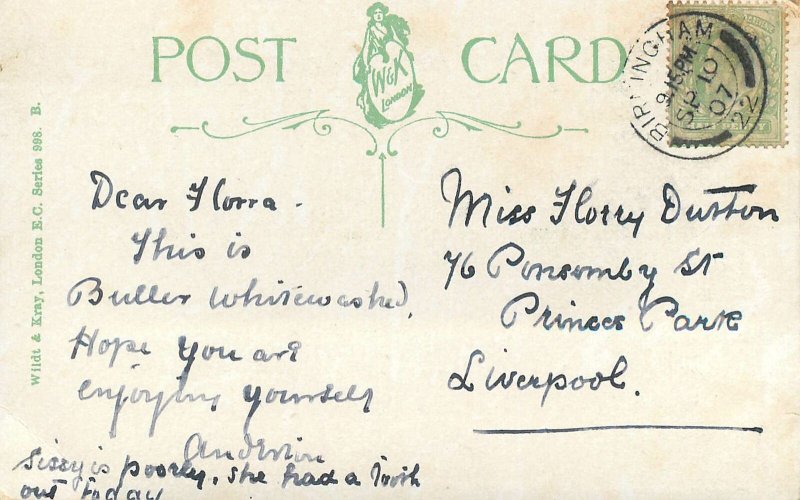 POST CARD
W&K
LONDON
BIRMINGHAM
9.15PM
SP 10
07
22
Wildt & Kray, London E.C. Series 998. B.
Dear Florra.
This is
Buller whitewashed.
Hope you are
enjoying yourself
Sissy is poorly, she had a tooth
out today
Miss Florry Dutton
76 Ponsomby St
Princes Park
Liverpool.